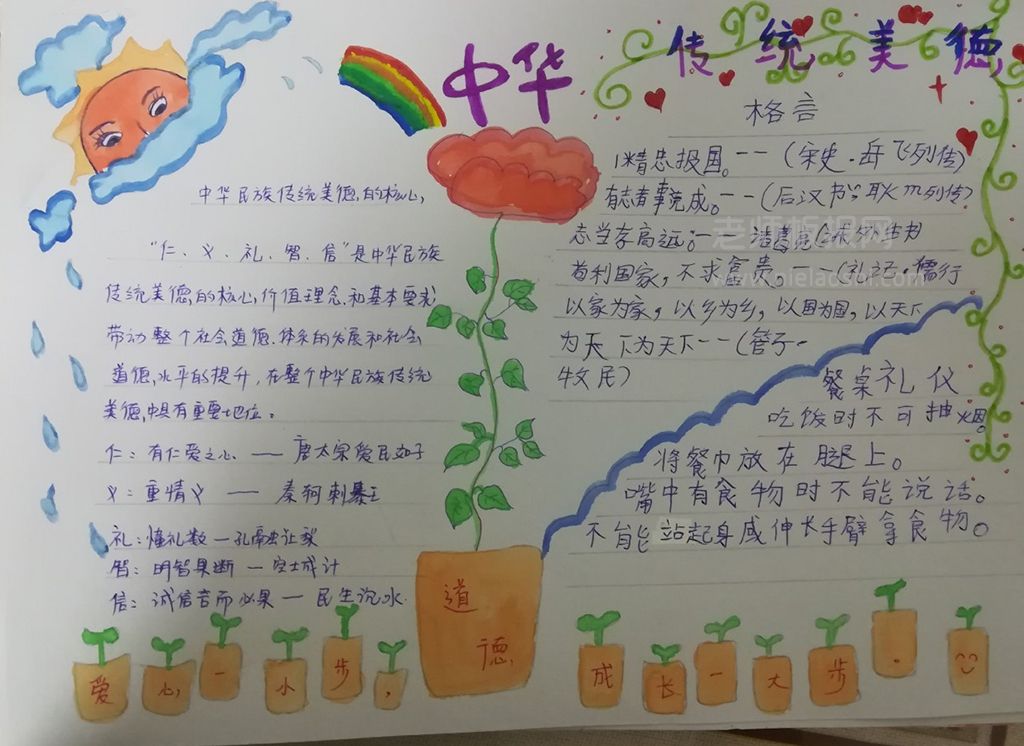 中华传统美德
中华民族传统美德的核心
"仁、义、礼、智、信"是中华民族
传统美德的核心价值理念和基本要求
带动整个社会道德体系的发展和社会
道德水平的提升,在整个中华民族传统
美德中具有重要地位。
仁:有仁爱之心 —— 唐太宗爱民如子
义:重情义 —— 秦轲刺暴王
礼:懂礼数—孔融让梨
智:明智果断 — 空城计
信:诚信言而必果 — 民生沉水
格言
1精忠报国。——(宋史·岳飞列传)
有志者事竟成。——(后汉书·耿列传)
志当存高远。——诸葛亮
首利国家,不求富贵。——(礼记·儒行
以家为家,以乡为乡,以国为国,以天下
为天下为天下——(管子·
牧民)
老师板报网
餐桌礼仪
吃饭时不可抽烟。
将餐巾放在腿上。
嘴中有食物时不能说话。
不能站起身或伸长手臂拿食物。
道德
爱心一小步,
成长一大步。